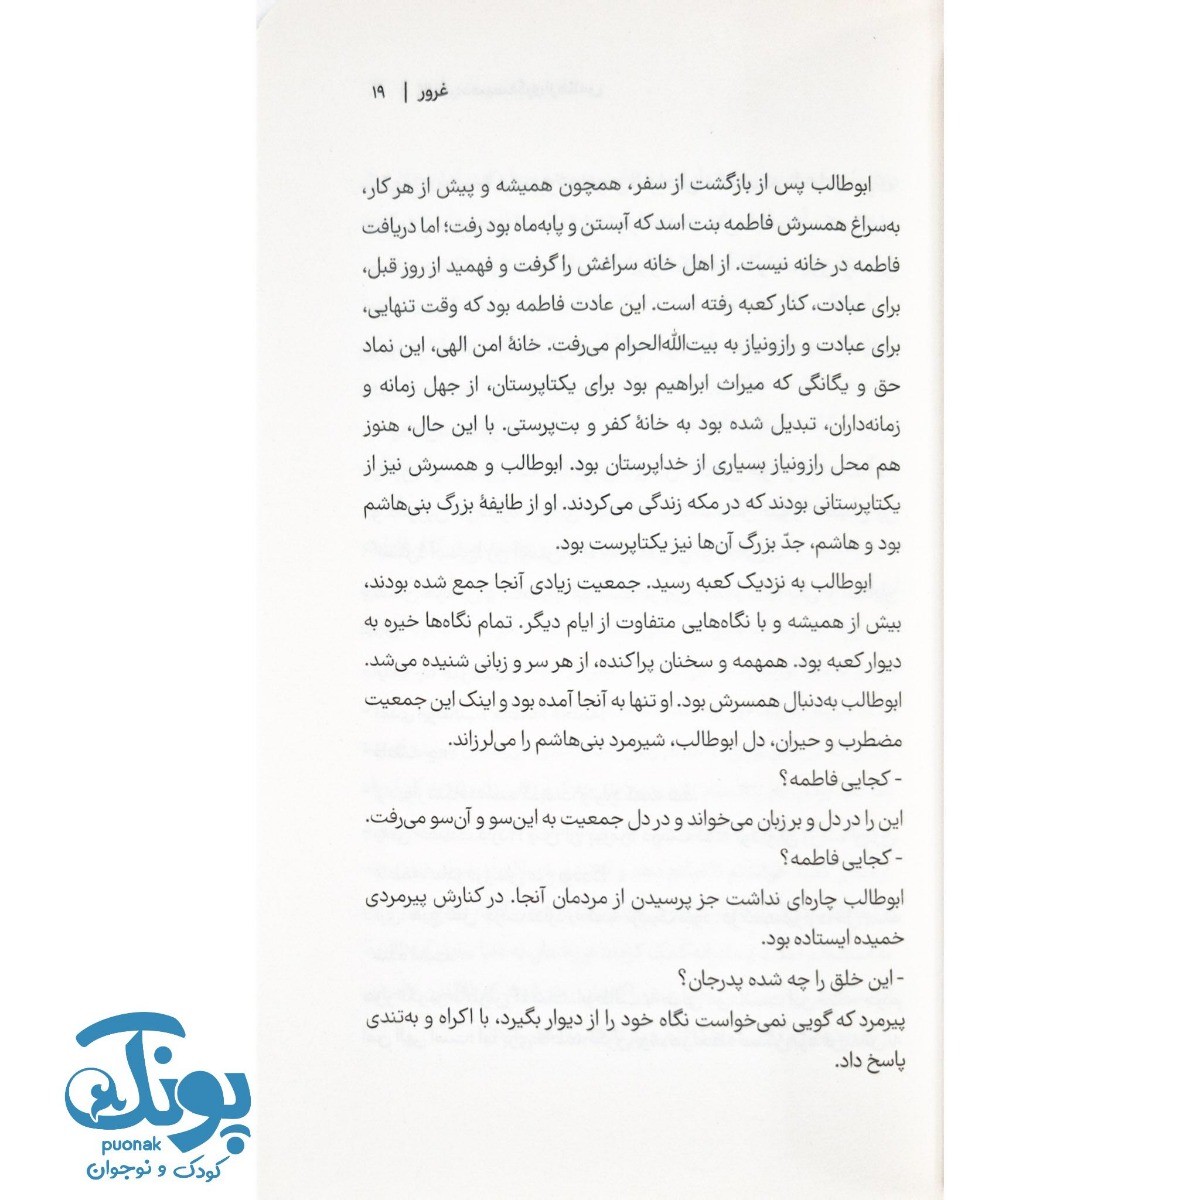 غرور | ۱۹
ابوطالب پس از بازگشت از سفر، همچون همیشه و پیش از هر کار،
به‌سراغ همسرش فاطمه بنت اسد که آبستن و پابه‌ماه بود رفت؛ اما دریافت
فاطمه در خانه نیست. از اهل خانه سراغش را گرفت و فهمید از روز قبل،
برای عبادت، کنار کعبه رفته است. این عادت فاطمه بود که وقت تنهایی،
برای عبادت و رازونیاز به بیت‌الله‌الحرام می‌رفت. خانهٔ امن الهی، این نماد
حق و یگانگی که میراث ابراهیم بود برای یکتاپرستان، از جهل زمانه و
زمانه‌داران، تبدیل شده بود به خانهٔ کفر و بت‌پرستی. با این حال، هنوز
هم محل رازونیاز بسیاری از خداپرستان بود. ابوطالب و همسرش نیز از
یکتاپرستانی بودند که در مکه زندگی می‌کردند. او از طایفهٔ بزرگ بنی‌هاشم
بود و هاشم، جدّ بزرگ آن‌ها نیز یکتاپرست بود.
ابوطالب به نزدیک کعبه رسید. جمعیت زیادی آنجا جمع شده بودند،
بیش از همیشه و با نگاه‌هایی متفاوت از ایام دیگر. تمام نگاه‌ها خیره به
دیوار کعبه بود. همهمه و سخنان پراکنده، از هر سر و زبانی شنیده می‌شد.
ابوطالب به‌دنبال همسرش بود. او تنها به آنجا آمده بود و اینک این جمعیت
مضطرب و حیران، دل ابوطالب، شیرمرد بنی‌هاشم را می‌لرزاند.
- کجایی فاطمه؟
این را در دل و بر زبان می‌خواند و در دل جمعیت به این‌سو و آن‌سو می‌رفت.
- کجایی فاطمه؟
ابوطالب چاره‌ای نداشت جز پرسیدن از مردمان آنجا. در کنارش پیرمردی
خمیده ایستاده بود.
- این خلق را چه شده پدرجان؟
پیرمرد که گویی نمی‌خواست نگاه خود را از دیوار بگیرد، با اکراه و به‌تندی
پاسخ داد.
پونک
puonak
کودک و نوجوان